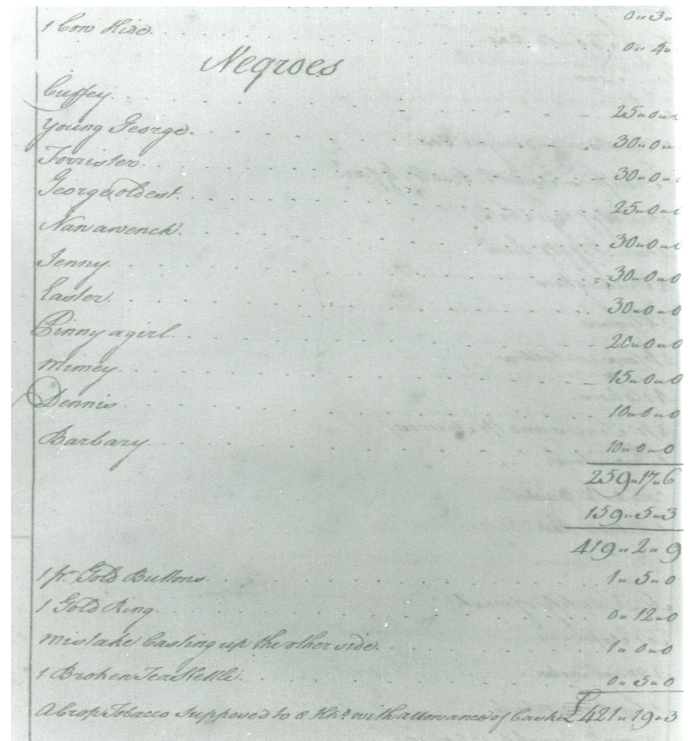 0 " 3 "
1 Cow Hide. 0 " 4 "
Negroes
Cuffey. 25 " 0 "
Young George. 30 " 0 "
Forrister. 30 " 0 "
George oldest. 25 " 0 "
Nan a wench. 30 " 0 "
Jenny. 30 " 0 " 0
Easter. 30 " 0 " 0
Pinny a girl. 20 " 0 " 0
Mimey. 15 " 0 " 0
Dennis 10 " 0 " 0
Barbary. 10 " 0 " 0
259 " 17 " 6
159 " 5 " 3
419 " 2 " 9
1 pr. Gold Buttons. 1 " 5 " 0
1 Gold Ring. 0 " 12 " 0
mistake Casting up the other side. 1 " 0 " 0
1 Broken Tea Kettle. 0 " 5 " 0
A Crop Tobacco Supposed to 8 Hhds with allowance of Cask £ 421 " 19 " 3